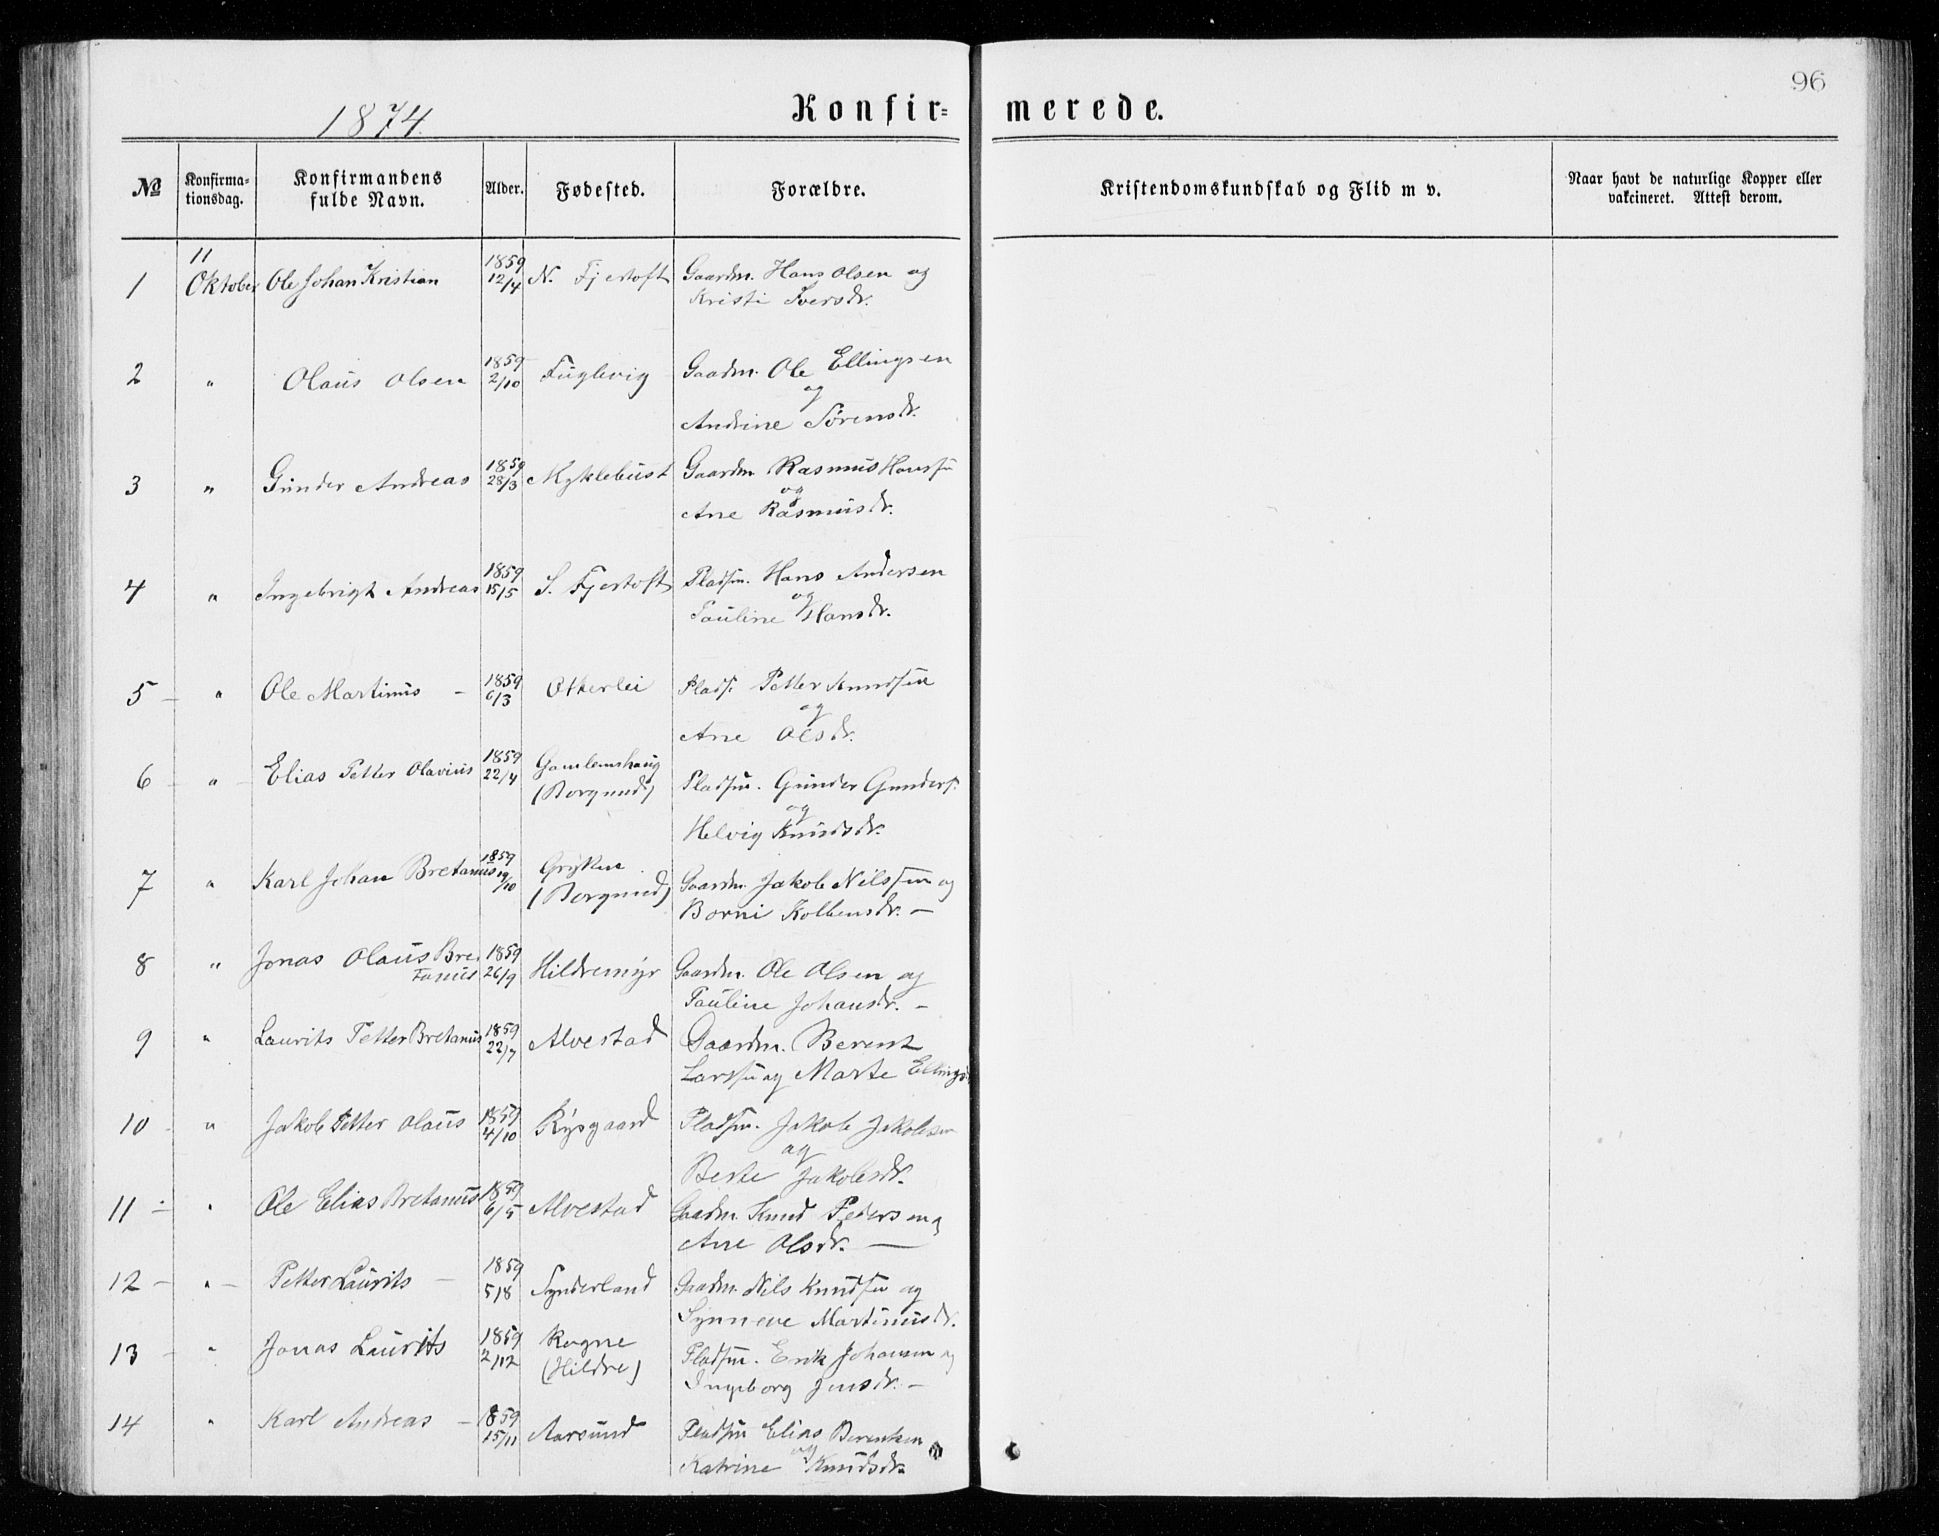 96
1874.
Konfir=
merede.
No
Konfirma-
tionsdag.
Konfirmandens
fulde Navn.
Alder.
Fødested.
Forældre.
Kristendomskundskab og Flid m v.
Naar havt de naturlige Kopper eller
vakcineret. Attest derom.
1 11 Oktober Ole Johan Kristian 1859 12/4 N. Fjertoft Gaardm. Hans Olsen og
Kristi Iversdr.
2 " Olaus Olsen 1859 2/10 Fuglevig Gaadm. Ole Ellingsen
og
Andrine Sørensdr.
3 " Gunder Andreas 1859 28/3 Myklebust Gaardm Rasmus Hanssn
og
Ane Rasmusdr.
4 " Ingebrigt Andreas 1859 15/5 S. Fjertoft Pladsm. Hans Andersen
og
Pauline Hansdr.
5 - " Ole Martinus - 1859 6/3 Otterlei Pladsm. Petter Knudsen
og
Ane Olsdr.
6 - " Elias Petter Olavius 1859 22/4 Gamlemshaug
(Borgund) Pladsm. Gunder Gunders.
og
Helvig Knudsdr.
7 " Karl Johan Bretanus 1859 19/10 Grytten
(Borgund) Gaardm. Jakob Nilssen og
Borni Kolbensdr. -
8 " Jonas Olaus Bre
tanus 1859 26/9 Hildremyr Gaardm. Ole Olsen og
Pauline Johansdr. -
9 " Laurits Petter Bretanus 1859 22/7 Alvestad Gaardm. Berent
Larssn og Marte Ellingsd
10 - " Jakob Petter Olaus 1859 4/10 Rysgaard Pladsm. Jakob Jakobsen
og
Berte Jakobsdr.
11 - " Ole Elias Bretanus 1859 6/5 Alvestad Gaadm. Knud Pedersen og
Ane Olsdr. -
12 - " - Petter Laurits - 1859 5/8 Synderland Gaadm. Nils Knudsn og
Synneve Martinusdr.
13 - " Jonas Laurits 1859 2/12 Rogne
(Hildre) Pladsm. Erik Johansen og
Ingeborg Jensdr. -
14 " Karl Andreas - 1859 15/11 Aarsund Pladsm Elias Berentsen
og
Katrine Knudsdr.